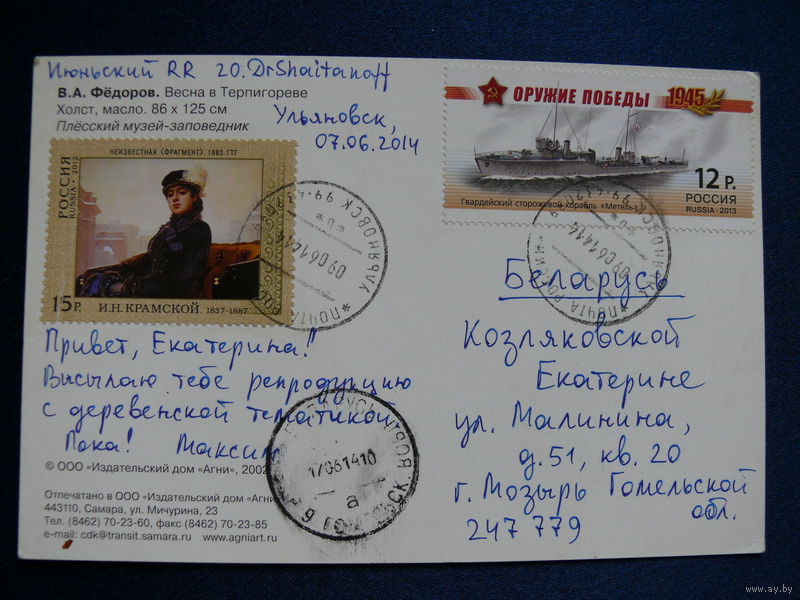 Июньский RR 20. DrShaitanoff
В.А. Фёдоров. Весна в Терпигореве
Холст, масло. 86 х 125 см
Плёсский музей-заповедник
Ульяновск,
07.06.2014
НЕИЗВЕСТНАЯ (ФРАГМЕНТ). 1883. ГТГ
РОССИЯ
RUSSIA • 2012
15 Р.
И.Н. КРАМСКОЙ 1837-1887
УЛЬЯНОВСК
09 06 14 14
* ПОЧТА
ОРУЖИЕ ПОБЕДЫ 1945
12 Р.
РОССИЯ
RUSSIA • 2013
Гвардейский сторожевой корабль «Метель»
09 06 14 14
Привет, Екатерина!
Высылаю тебе репродукцию
с деревенской тематикой
Пока! Максим
17 06 14 10
а
© ООО «Издательский дом «Агни», 2002
Отпечатано в ООО «Издательский дом «Агни
443110, Самара, ул. Мичурина, 23
Тел. (8462) 70-23-60, факс (8462) 70-23-85
e-mail: cdk@transit.samara.ru www.agniart.ru
Беларусь
Козляковской
Екатерине
ул. Малинина,
д. 51, кв. 20
г. Мозырь Гомельской
обл.
247 779
www.ay.by